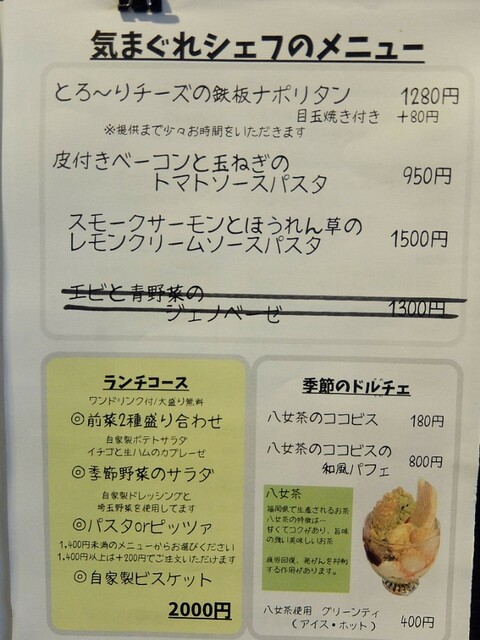 気まぐれシェフのメニュー
とろ～りチーズの鉄板ナポリタン 1280円
目玉焼き付き +80円
※提供まで少々お時間をいただきます
皮付きベーコンと玉ねぎの
トマトソースパスタ 950円
スモークサーモンとほうれん草の
レモンクリームソースパスタ 1500円
エビと青野菜の
ジェノベーゼ 1300円
ランチコース
ワンドリンク付/大盛り無料
◎前菜2種盛り合わせ
自家製ポテトサラダ
イチゴと生ハムのカプレーゼ
◎季節野菜のサラダ
自家製ドレッシングと
埼玉野菜を使用してます
◎パスタorピッツァ
1,400円未満のメニューからお選びください
1,400円以上は+200円でご注文いただけます
◎自家製ビスケット
2000円
季節のドルチェ
八女茶のココビス 180円
八女茶のココビスの
和風パフェ 800円
八女茶
福岡県で生産されるお茶
八女茶の特徴は…
甘くてコクがあり、旨味
の強い美味しいお茶
疲労回復、老がんを抑制
する作用があります。
八女茶使用 グリーンティ
(アイス・ホット) 400円